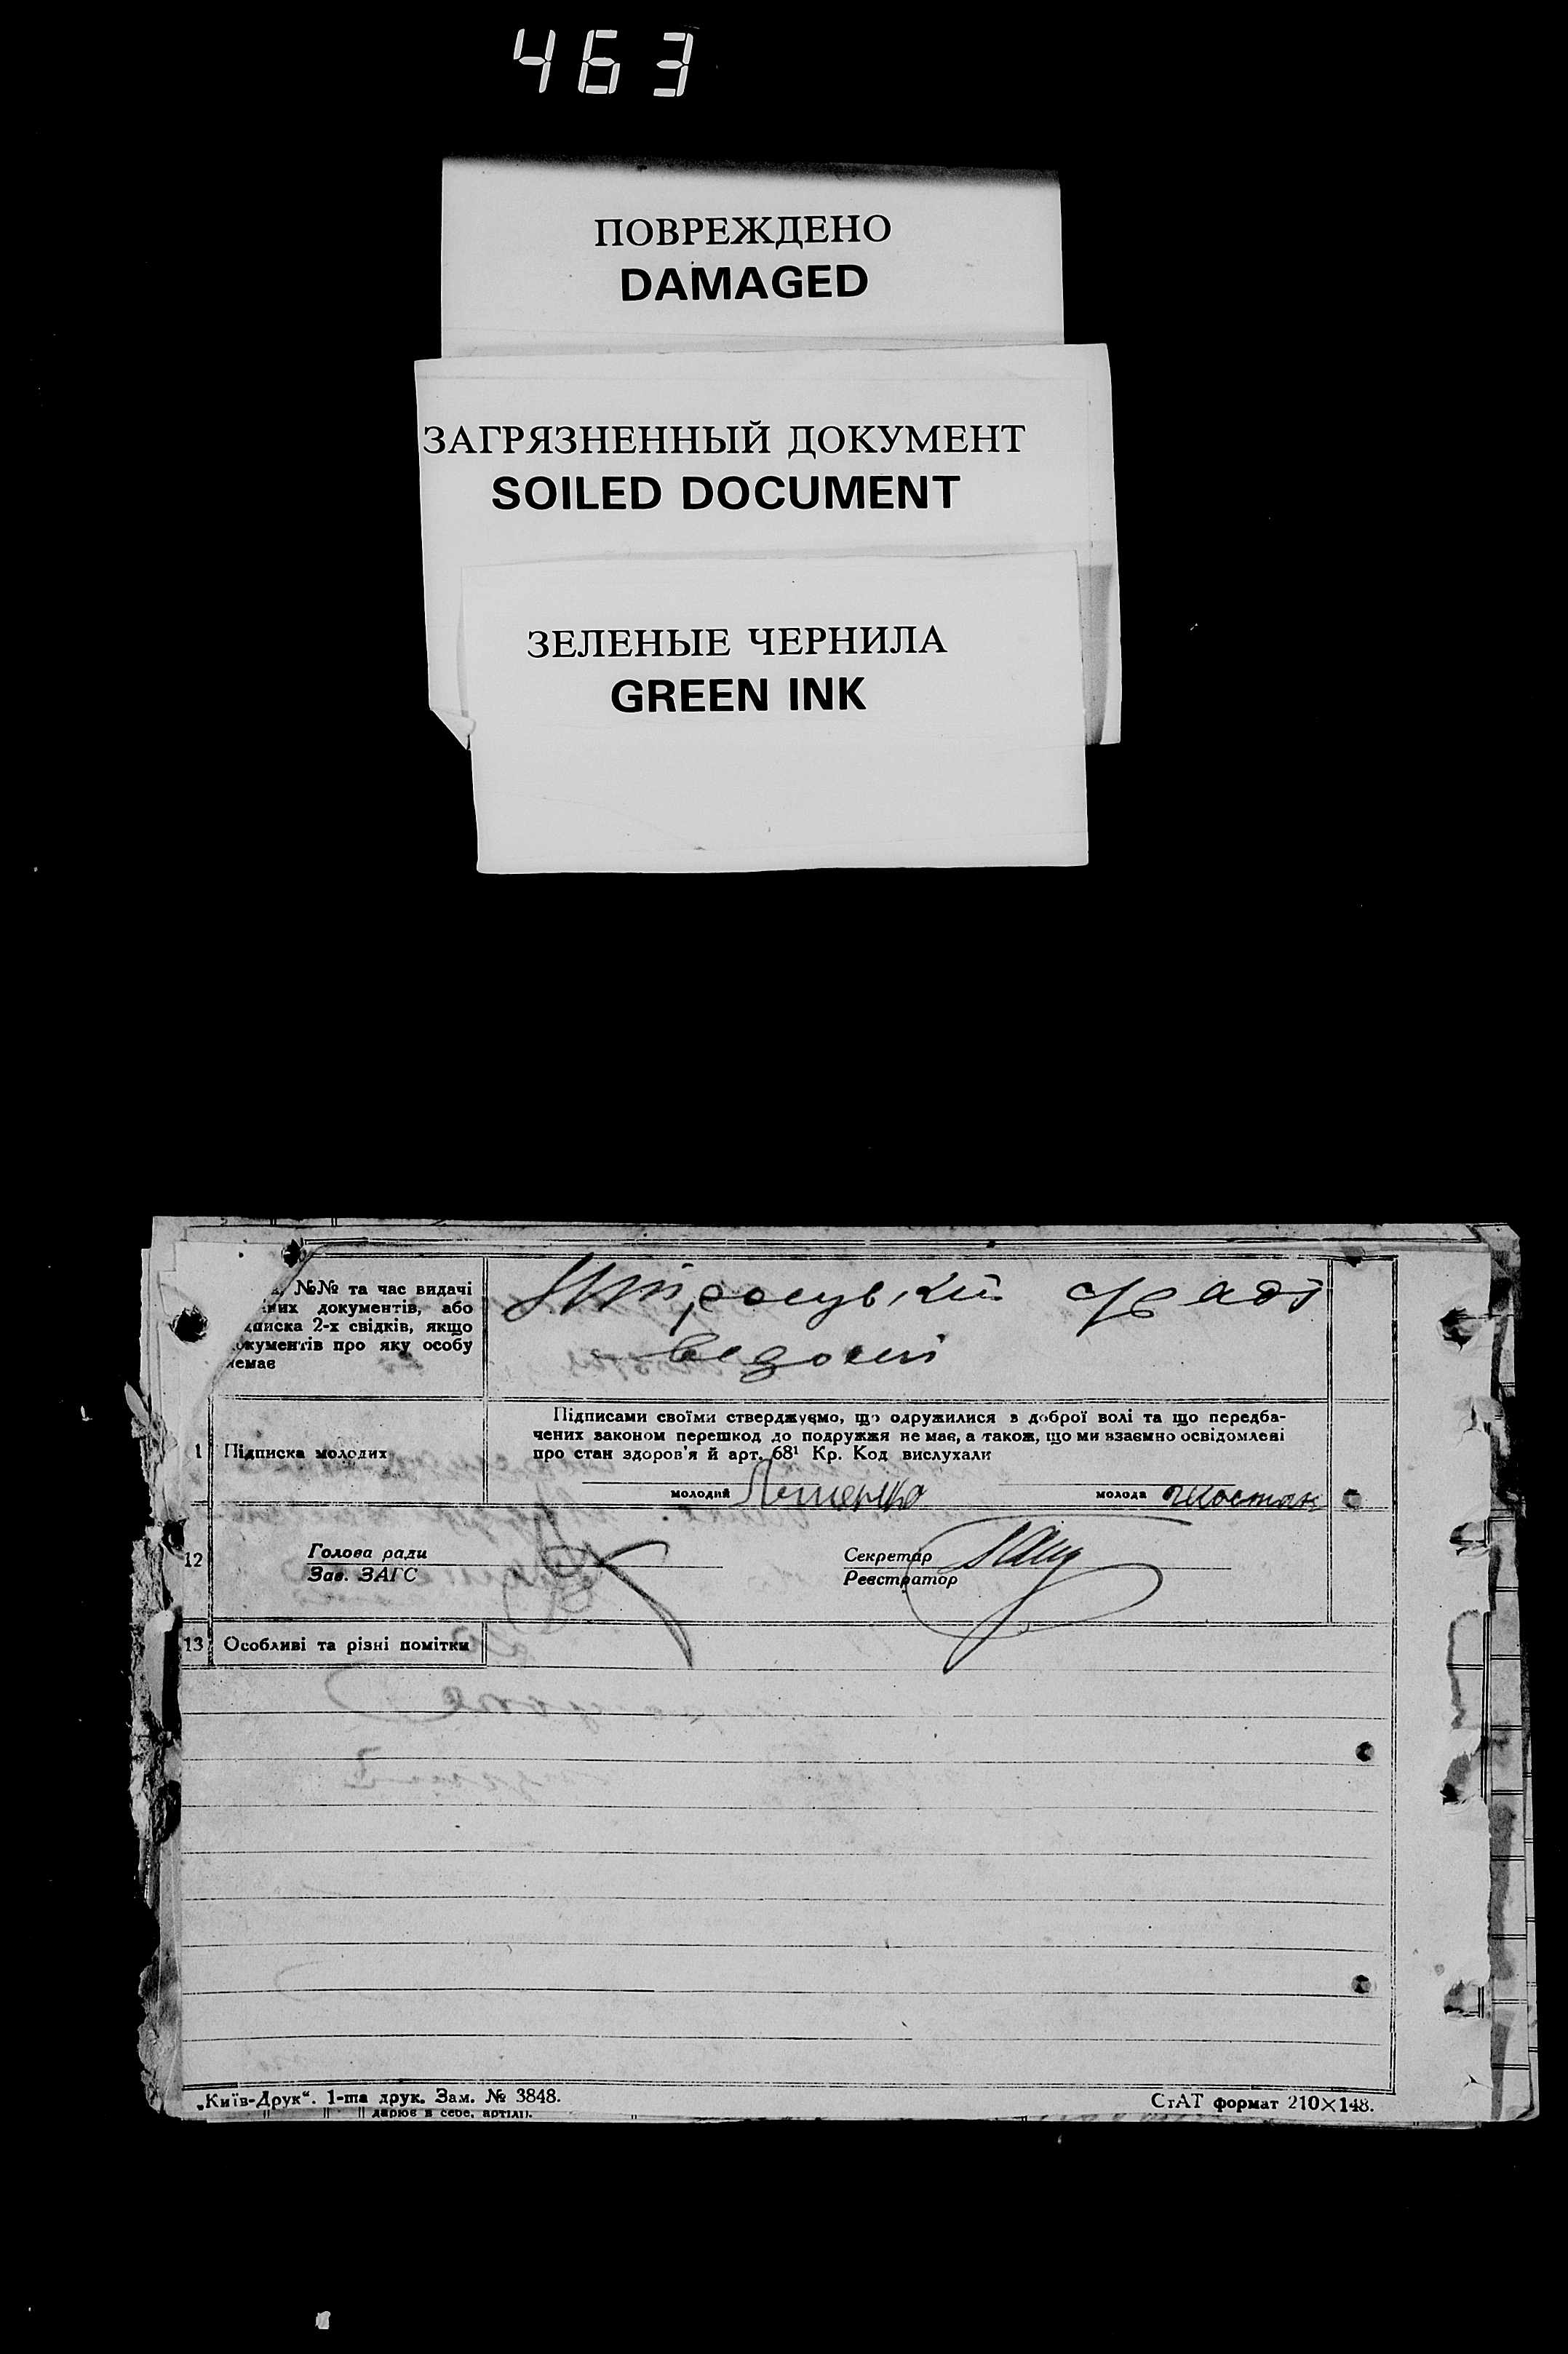 463
ПОВРЕЖДЕНО
DAMAGED
ЗАГРЯЗНЕННЫЙ ДОКУМЕНТ
SOILED DOCUMENT
ЗЕЛЕНЫЕ ЧЕРНИЛА
GREEN INK
№№ та час видачі
документів, або
2-х свідків, якщо
про яку особу
немає
Підписами своїми стверджуємо, що одружилися з доброї волі та що передба-
чених законом перешкод до подружжя не має, а також, що ми взаємно освідомлені
про стан здоров'я й арт. 68¹ Кр. Код вислухали
1 Підписка молодих
молодий молода
12
Голова ради
Зав. ЗАГС
Секретар
Реєстратор
13 Особливі та різні помітки
„Київ-Друк“. 1-ша друк. Зам. № 3848.
СтАТ формат 210×148.